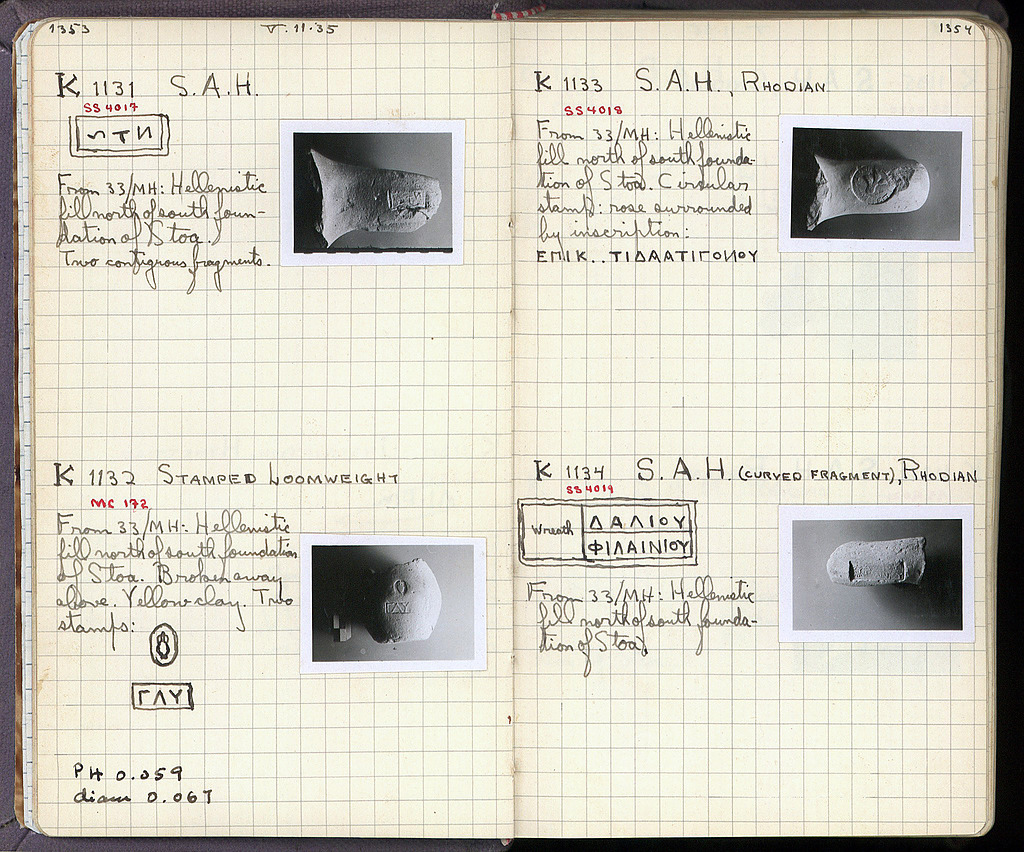 1353
V.11.35
K 1131 S.A.H.
SS 4017
ΣΤΝ
From 33/MH: Hellenistic
fill north of south foun-
dation of Stoa.
Two contiguous fragments.
K 1132 STAMPED LOOMWEIGHT
MC 172
From 33/MH: Hellenistic
fill north of south foundation
of Stoa. Broken away
above. Yellow clay. Two
stamps:
ΓΛΥ
PH 0.059
diam 0.067
1354
K 1133 S.A.H., RHODIAN
SS 4018
From 33/MH: Hellenistic
fill north of south founda-
tion of Stoa. Circular
stamp: rose surrounded
by inscription:
ΕΠΙΚ..ΤΙΔΑΑΤΙΓΟΝΟΥ
K 1134 S.A.H. (CURVED FRAGMENT), RHODIAN
SS 4019
Wreath ΔΑΛΙΟΥ
ΦΙΛΑΙΝΙΟΥ
From 33/MH: Hellenistic
fill north of south founda-
tion of Stoa.